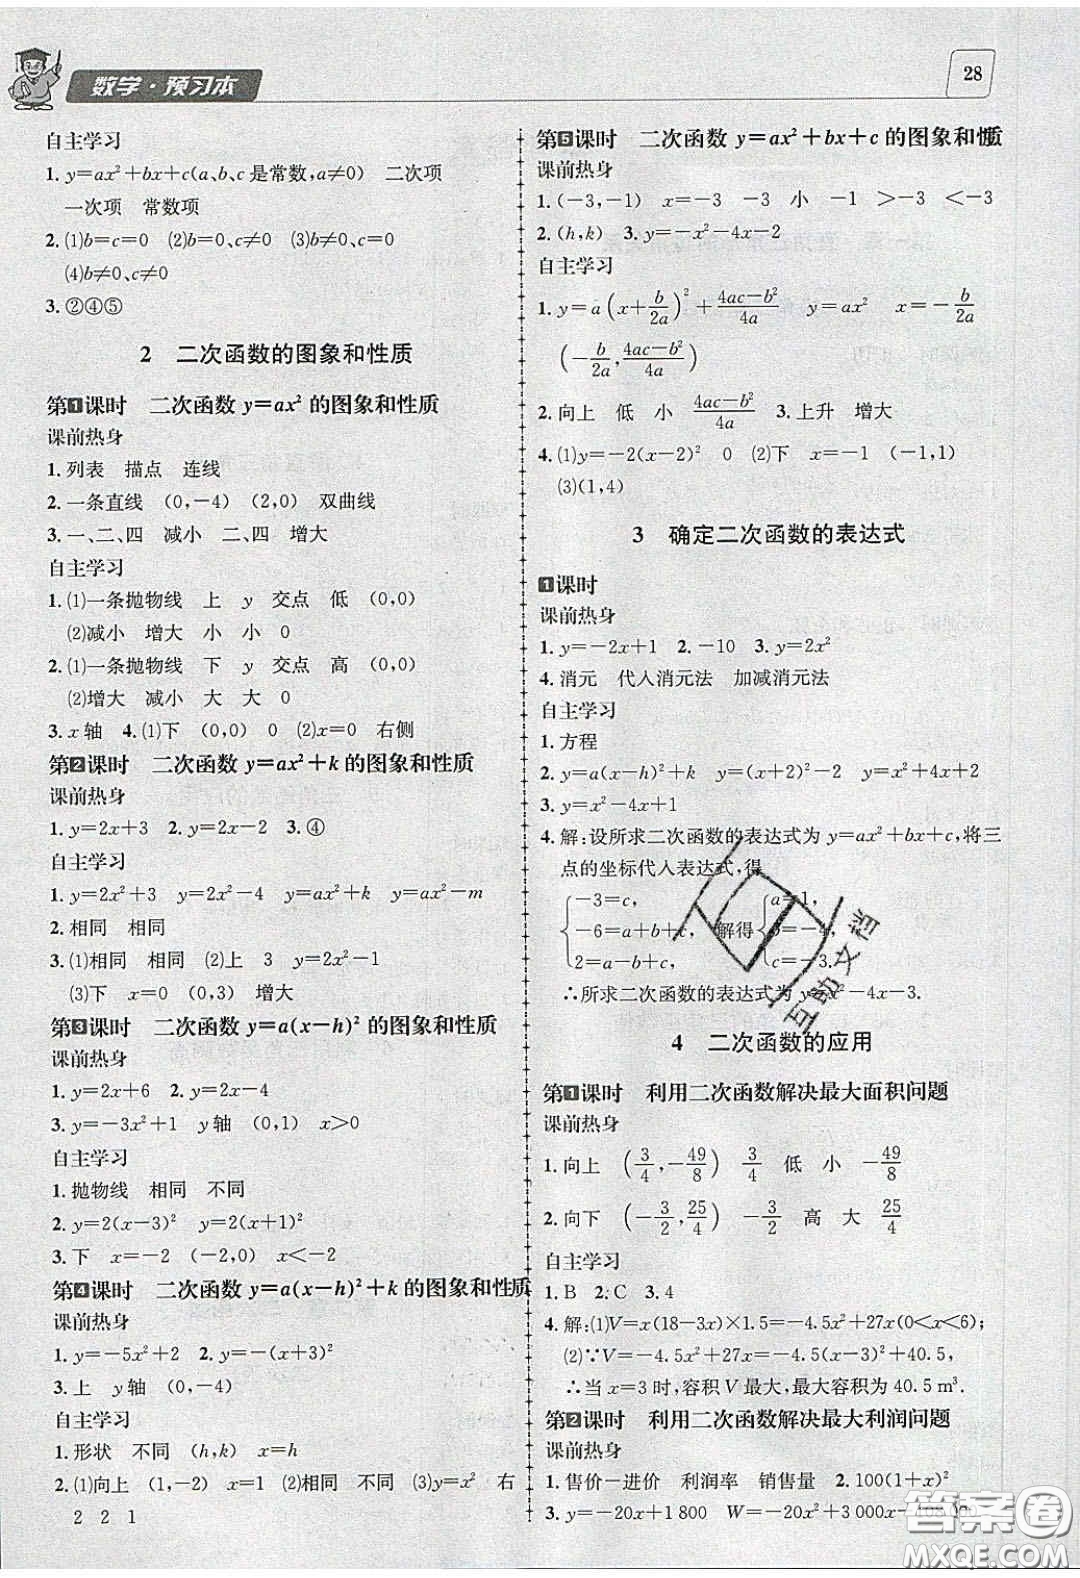 数学·预习本
28
自主学习
1. y=ax²+bx+c(a、b、c 是常数,a≠0) 二次项
一次项 常数项
2. (1)b=c=0 (2)b=0、c≠0 (3)b≠0、c=0
(4)b≠0、c≠0
3. ②④⑤
2 二次函数的图象和性质
第1课时 二次函数 y=ax² 的图象和性质
课前热身
1. 列表 描点 连线
2. 一条直线 (0,-4) (2,0) 双曲线
3. 一、二、四 减小 二、四 增大
自主学习
1. (1)一条抛物线 上 y 交点 低 (0,0)
(2)减小 增大 小 小 0
2. (1)一条抛物线 下 y 交点 高 (0,0)
(2)增大 减小 大 大 0
3. x 轴 4. (1)下 (0,0) 0 (2)x=0 右侧
第2课时 二次函数 y=ax²+k 的图象和性质
课前热身
1. y=2x+3 2. y=2x-2 3. ④
自主学习
1. y=2x²+3 y=2x²-4 y=ax²+k y=ax²-m
2. 相同 相同
3. (1)相同 相同 (2)上 3 y=2x²-1
(3)下 x=0 (0,3) 增大
第3课时 二次函数 y=a(x-h)² 的图象和性质
课前热身
1. y=2x+6 2. y=2x-4
3. y=-3x²+1 y轴 (0,1) x>0
自主学习
1. 抛物线 相同 不同
2. y=2(x-3)² y=2(x+1)²
3. 下 x=-2 (-2,0) x<-2
第4课时 二次函数 y=a(x-h)²+k 的图象和性质
课前热身
1. y=-5x²+2 2. y=-(x+3)²
3. 上 y轴 (0,-4)
自主学习
1. 形状 不同 (h,k) x=h
2. (1)向上 (1,-2) x=1 (2)相同 不同 (3)y=x² 右
2 2 1
第5课时 二次函数 y=ax²+bx+c 的图象和性质
课前热身
1. (-3,-1) x=-3 -3 小 -1 >-3 <-3
2. (h,k) 3. y=-x²-4x-2
自主学习
1. y=a(x+b/2a)²+(4ac-b²)/4a y=ax² x=-b/2a
(-b/2a,(4ac-b²)/4a)
2. 向上 低 小 (4ac-b²)/4a 3. 上升 增大
4. (1)y=-2(x-2)² 0 (2)下 x=-1 (-1,1)
(3)(1,4)
3 确定二次函数的表达式
1课时
课前热身
1. y=-2x+1 2. -10 3. y=2x²
4. 消元 代入消元法 加减消元法
自主学习
1. 方程
2. y=a(x-h)²+k y=(x+2)²-2 y=x²+4x+2
3. y=x²-4x+1
4. 解:设所求二次函数的表达式为 y=ax²+bx+c,将三
点的坐标代入表达式,得
{-3=c, {a=1,
-6=a+b+c, 解得 b=-4,
2=a-b+c, c=-3.
∴所求二次函数的表达式为 y=x²-4x-3.
互助文档
4 二次函数的应用
第1课时 利用二次函数解决最大面积问题
课前热身
1. 向上 (3/4,-49/8) 3/4 低 小 -49/8
2. 向下 (-3/2,25/4) -3/2 高 大 25/4
自主学习
1. B 2. C 3. 4
4. 解:(1)V=x(18-3x)×1.5=-4.5x²+27x(0<x<6);
(2)∵V=-4.5x²+27x=-4.5(x-3)²+40.5,
∴当 x=3 时,容积 V 最大,最大容积为 40.5 m³.
第2课时 利用二次函数解决最大利润问题
课前热身
1. 售价-进价 利润率 销售量 2. 100(1+x)²
3. y=-20x+1 800 W=-20x²+3 000x-
答案圈
MXQE.COM